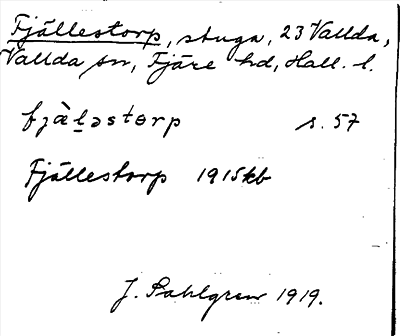 Fjällestorp, stuga, 23 Vallda,
Vallda sn, Fjäre hd, Hall. l.
fjàl̠əstɵrp s. 57
Fjällestorp 1915 kb
J. Sahlgren 1919.